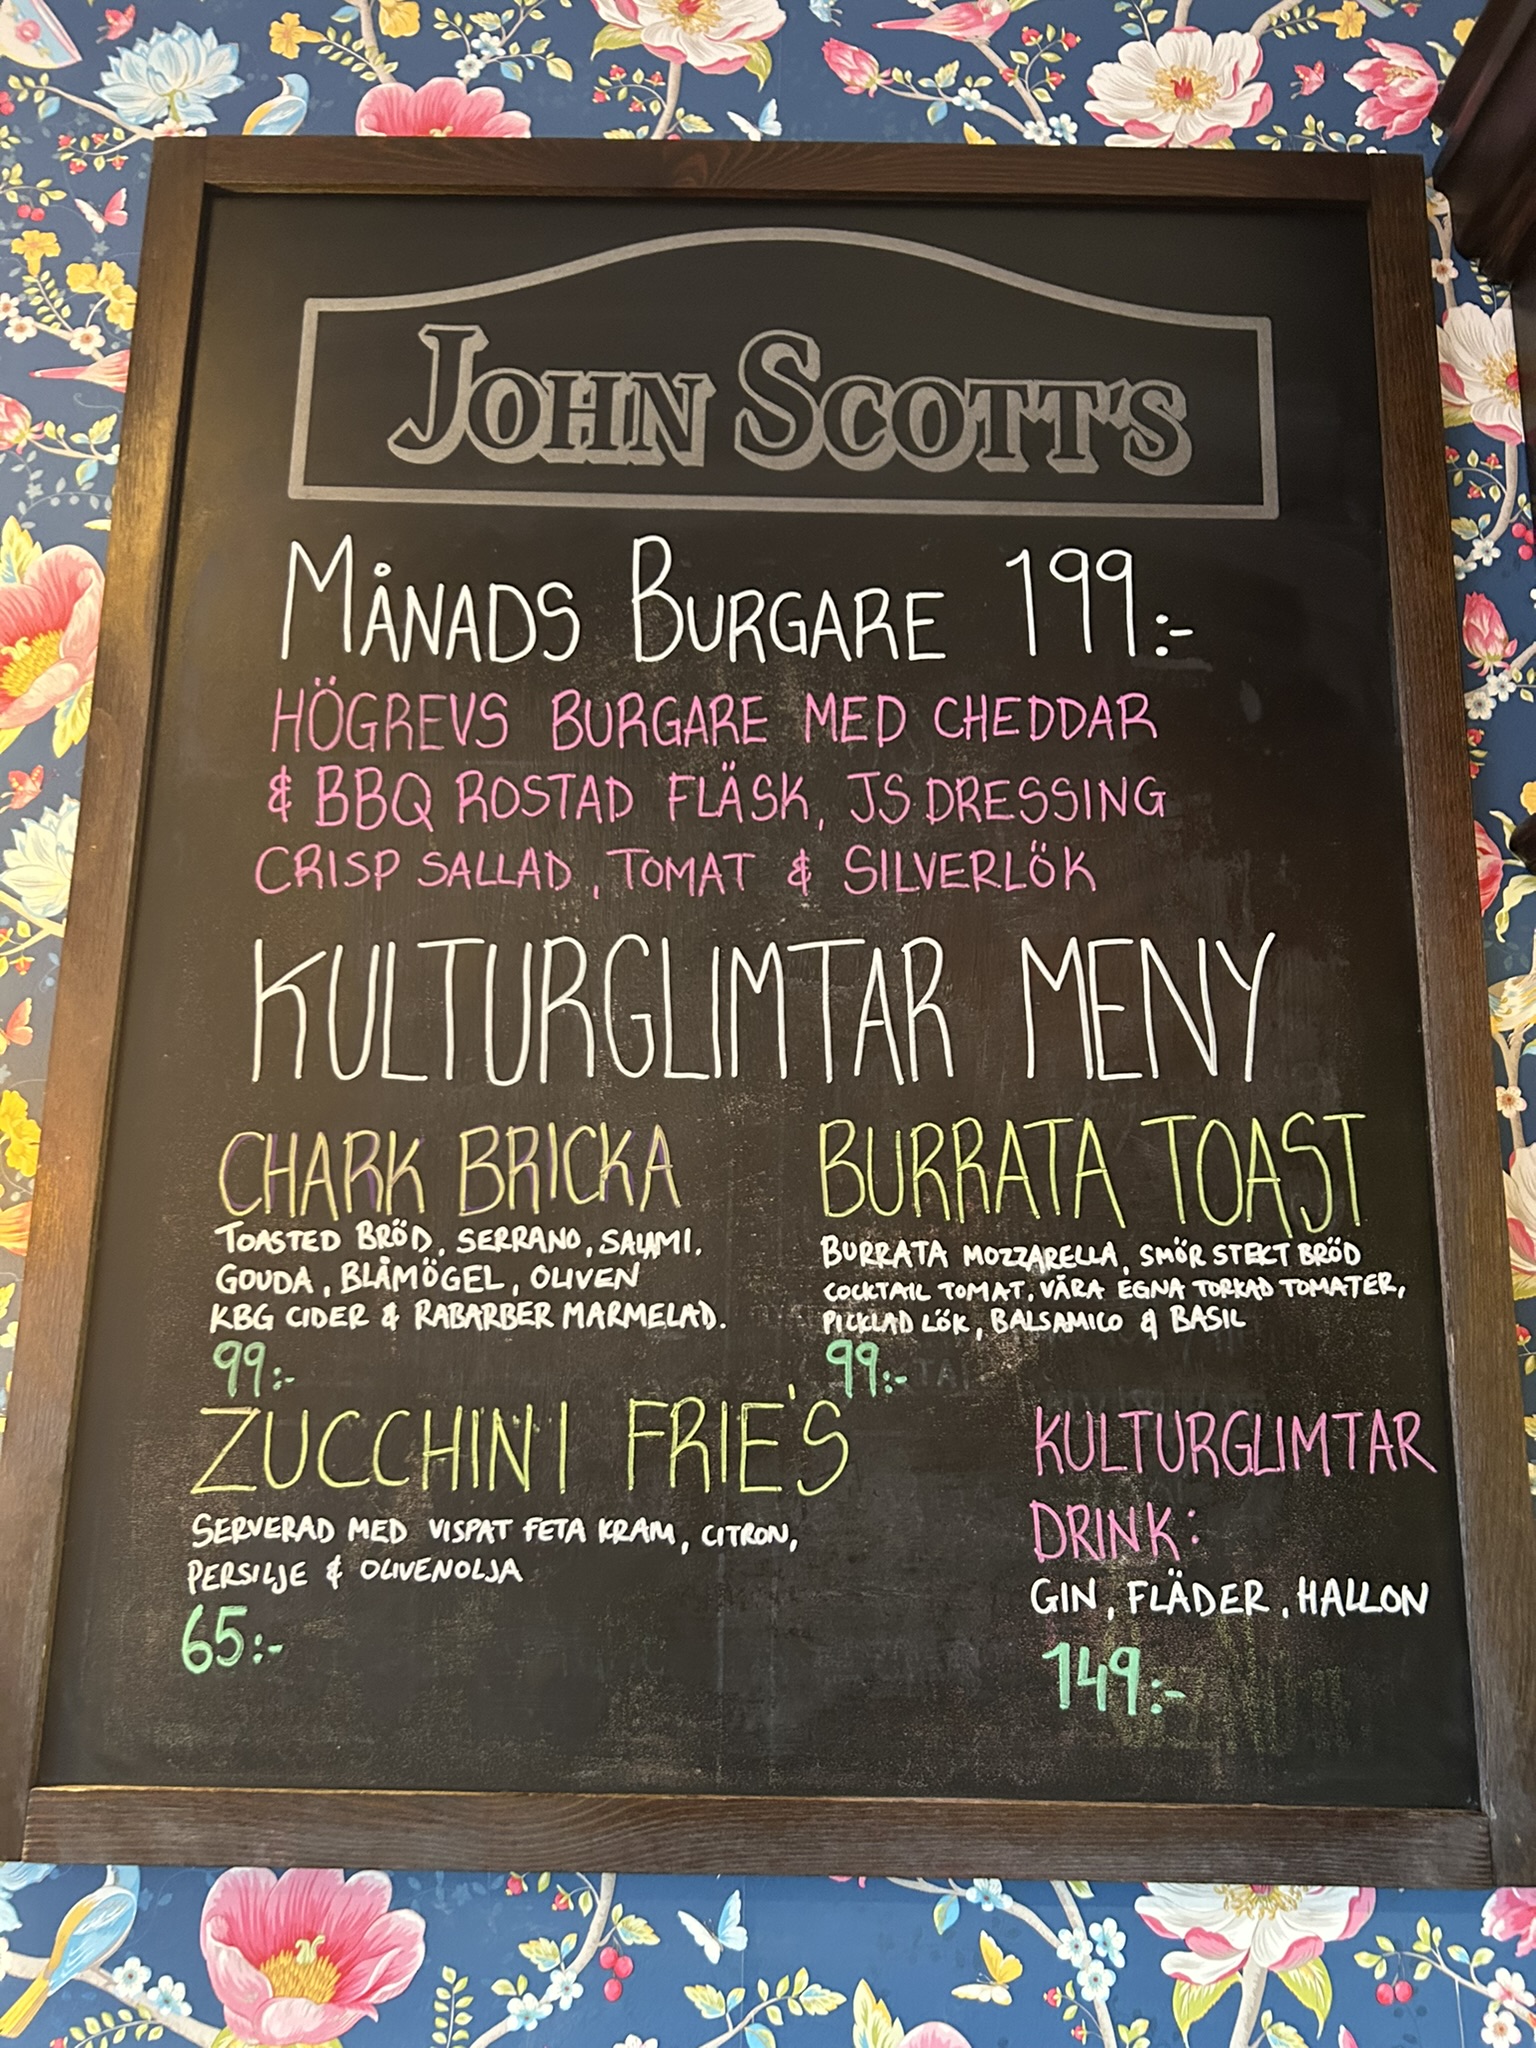 JOHN SCOTT'S
MÅNADS BURGARE 199:-
HÖGREVS BURGARE MED CHEDDAR
& BBQ ROSTAD FLÄSK, JS DRESSING
CRISP SALLAD, TOMAT & SILVERLÖK
KULTURGLIMTAR MENY
CHARK BRICKA
TOASTED BRÖD, SERRANO, SALAMI,
GOUDA, BLÅMÖGEL, OLIVEN
KBG CIDER & RABARBER MARMELAD.
99:-
BURRATA TOAST
BURRATA MOZZARELLA, SMÖR STEKT BRÖD
COCKTAIL TOMAT, VÅRA EGNA TORKAD TOMATER,
PICKLAD LÖK, BALSAMICO & BASIL
99:-
ZUCCHINI FRIE'S
SERVERAD MED VISPAT FETA KRAM, CITRON,
PERSILJE & OLIVENOLJA
65:-
KULTURGLIMTAR
DRINK:
GIN, FLÄDER, HALLON
149:-